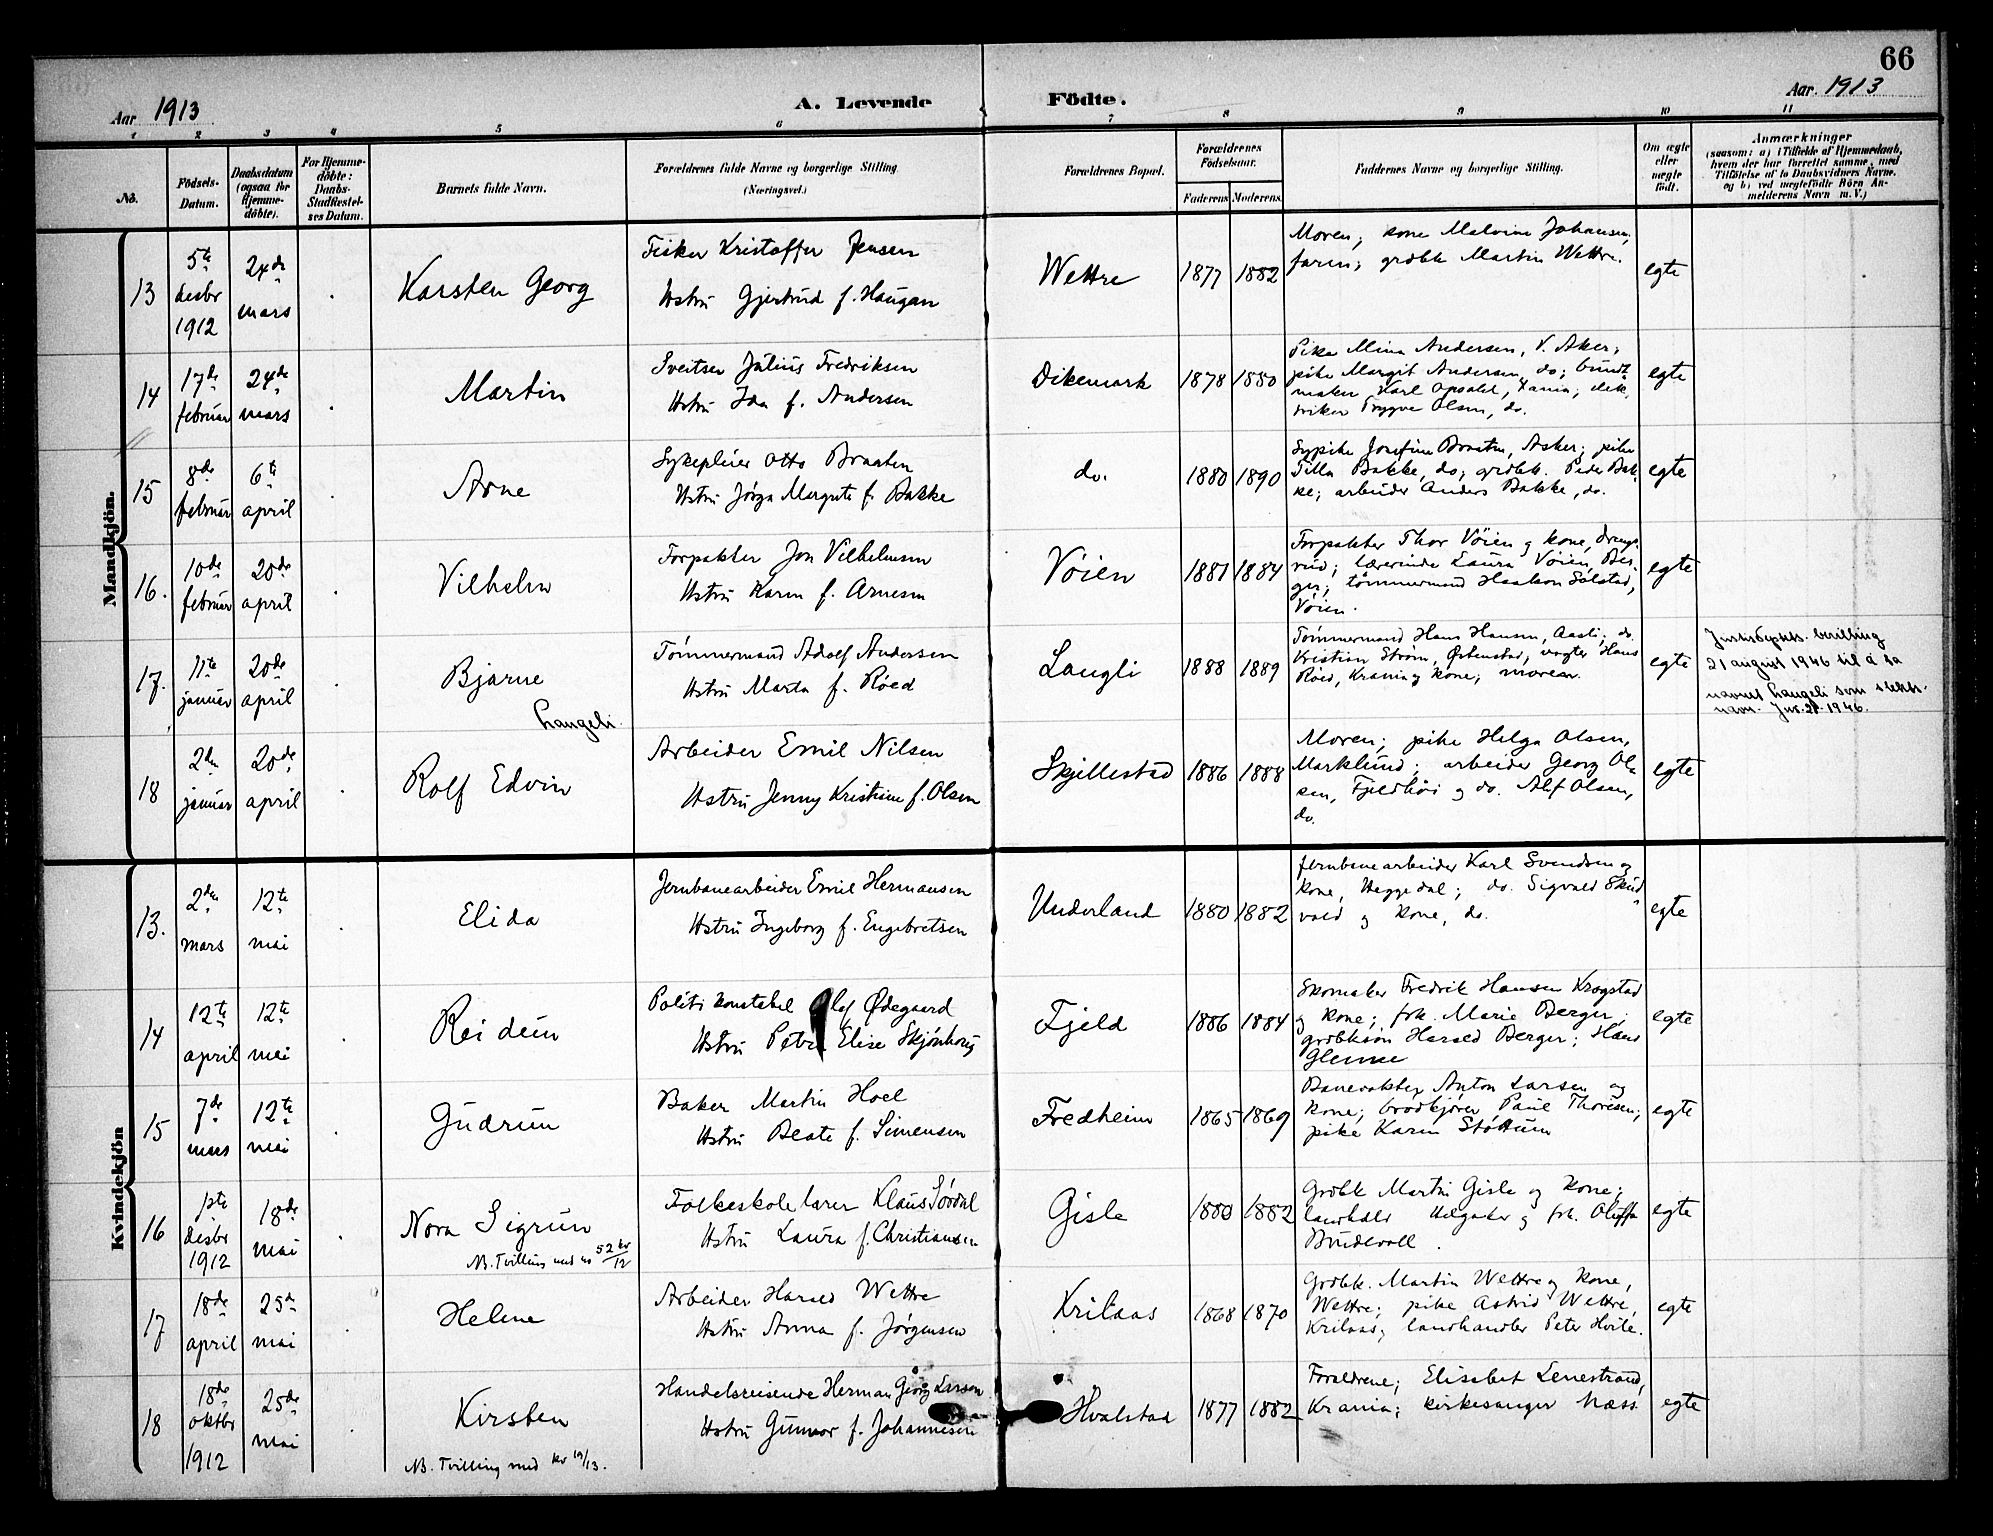 66
Aar 1913
A. Levende Födte.
Aar. 1913
1 2 3 4 5 6 7 8 9 10 11
No.
Födsels-
Datum.
Daabsdatum
(ogsaa for
Hjemme-
döbte).
For Hjemme-
döbte:
Daabs-
Stadfæstel-
ses Datum.
Barnets fulde Navn.
Forældrenes fulde Navne og borgerlige Stilling
(Næringsvei.)
Forældrenes Bopæl.
Forældrenes
Födselsaar.
Faderens Moderens
Faddernes Navne og borgerlige Stilling.
Om ægte
eller
uægte
født.
Anmærkninger
(saasom: a) i Tilfælde af Hjemmedaab,
hvem der har forrettet samme, med
Tilföielse af to Daabsvidners Navne,
og b) ved uægtefödte Börn An-
melderens Navn m. V.)
Mandkjön.
13
5te
desbr
1912
24de
mars
Karsten Georg
Fisker Kristoffer Jensen
Hstru Gjertrud f. Haugan
Wettre
1877 1882
Moren; kone Malvine Johansen,
faren; grdbk Martin Wettre.
egte
14
17de
februar
24de
mars
Martin
Sveitser Julius Fredriksen
Hstru Ida f. Andersen
Dikemark
1878 1880
Pike Mina Andersen, V. Aker;
pike Margit Andersen, do; bundt-
maker Karl Opsahl, Xania; elek.
triker Trygve Olsen, do.
egte
15
8de
februar
6te
april
Arne
Sykepleier Otto Braaten
Hstru Jörga Margrete f. Bakke
do.
1880 1890
Sypike Josefine Braaten, Asker; pike
Tilla Bakke, do; grdbk. Peder Bak-
ke; arbeider Anders Bakke, do.
egte
16.
10de
februar
20de
april
Vilhelm
Forpakter Jon Vilhelmsen
Hstru Karen f. Arnesen
Vøien
1881 1884
Forpakter Thor Vøien og kone, Drengs-
rud; lærerinde Laura Vøien, Ber-
ger; tömmermand Haakon Solstad,
Vøien.
egte
17.
11te
januar
20de
april
Bjarne
Langeli.
Tömmermand Adolf Andersen
Hstru Marta f. Røed
Langli
1888 1889
Tömmermand Hans Hansen, Aasli; do.
Kristian Strøm, Østenstad; vogter Hans
Röed, Krania og kone; moren.
egte
Justisdepts. bevilling
21 august 1946 til å ta
navnet Langeli som slekts-
navn. Jnr. 21. 1946.
18
2den
januar
20de
april
Rolf Edvin
Arbeider Emil Nilsen
Hstru Jenny Kristine f. Olsen
Skjillestad
1886 1888
Moren; pike Helga Olsen,
Marklund; arbeider Georg Ol-
sen, Fjeldhöi og do. Alf Olsen,
do.
egte
Kvindekjön
13.
2den
mars
12te
mai
Elida
Jernbanearbeider Emil Hermansen
Hstru Ingeborg f. Engebretsen
Underland
1880 1882
Jernbanearbeider Karl Svendsen og
kone, Heggedal; do. Sigvald Skud-
vold og kone, do.
egte
14
12te
april
12te
mai
Reidun
Politikonstabel Olaf Ødegaard
Hstru Petra Elise Skjönhaug
Fjeld
1886 1884
Skomaker Fredrik Hansen Krogstad
og kone; frk. Marie Berger;
grdbksön Harald Berger; Hans
Glenne
egte
15
7de
mars
12te
mai
Gudrun
Baker Martin Hoel
Hstru Beate f. Simensen
Fredheim
1865 1869
Banevokter Anton Larsen og
kone; brödkjörer Paul Thoresen;
pike Karen Støttum
egte
16
1ste
desbr
1912
18de
mai
Nora Sigrun
NB. Tvilling med no 52 kv/12
Folkeskolelærer Klaus Sördal
Hstru Laura f. Christiansen
Gisle
1880 1882
Grdbk Martin Gisle og kone;
landhdlr Helgaker og frk. Oluffa
Budevoll.
egte
17
18de
april
25de
mai
Helene
Arbeider Harald Wettre
Hstru Anna f. Jörgensen
Krilaas
1868 1870
Grdbk. Martin Wettre og kone,
Wettre; pike Astrid Wettre,
Krilaas; landhandler Peter Hvile.
egte
18
18de
oktbr
1912
25de
mai
Kirsten
NB. Tvilling med kv 19/13.
Handelsreisende Herman Georg Larsen
Hstru Gunvor f. Johannesen
Hvalstad
1877 1882
Forældrene; Elisabet Lenestrand,
Krania; kirkesanger Næss
egte